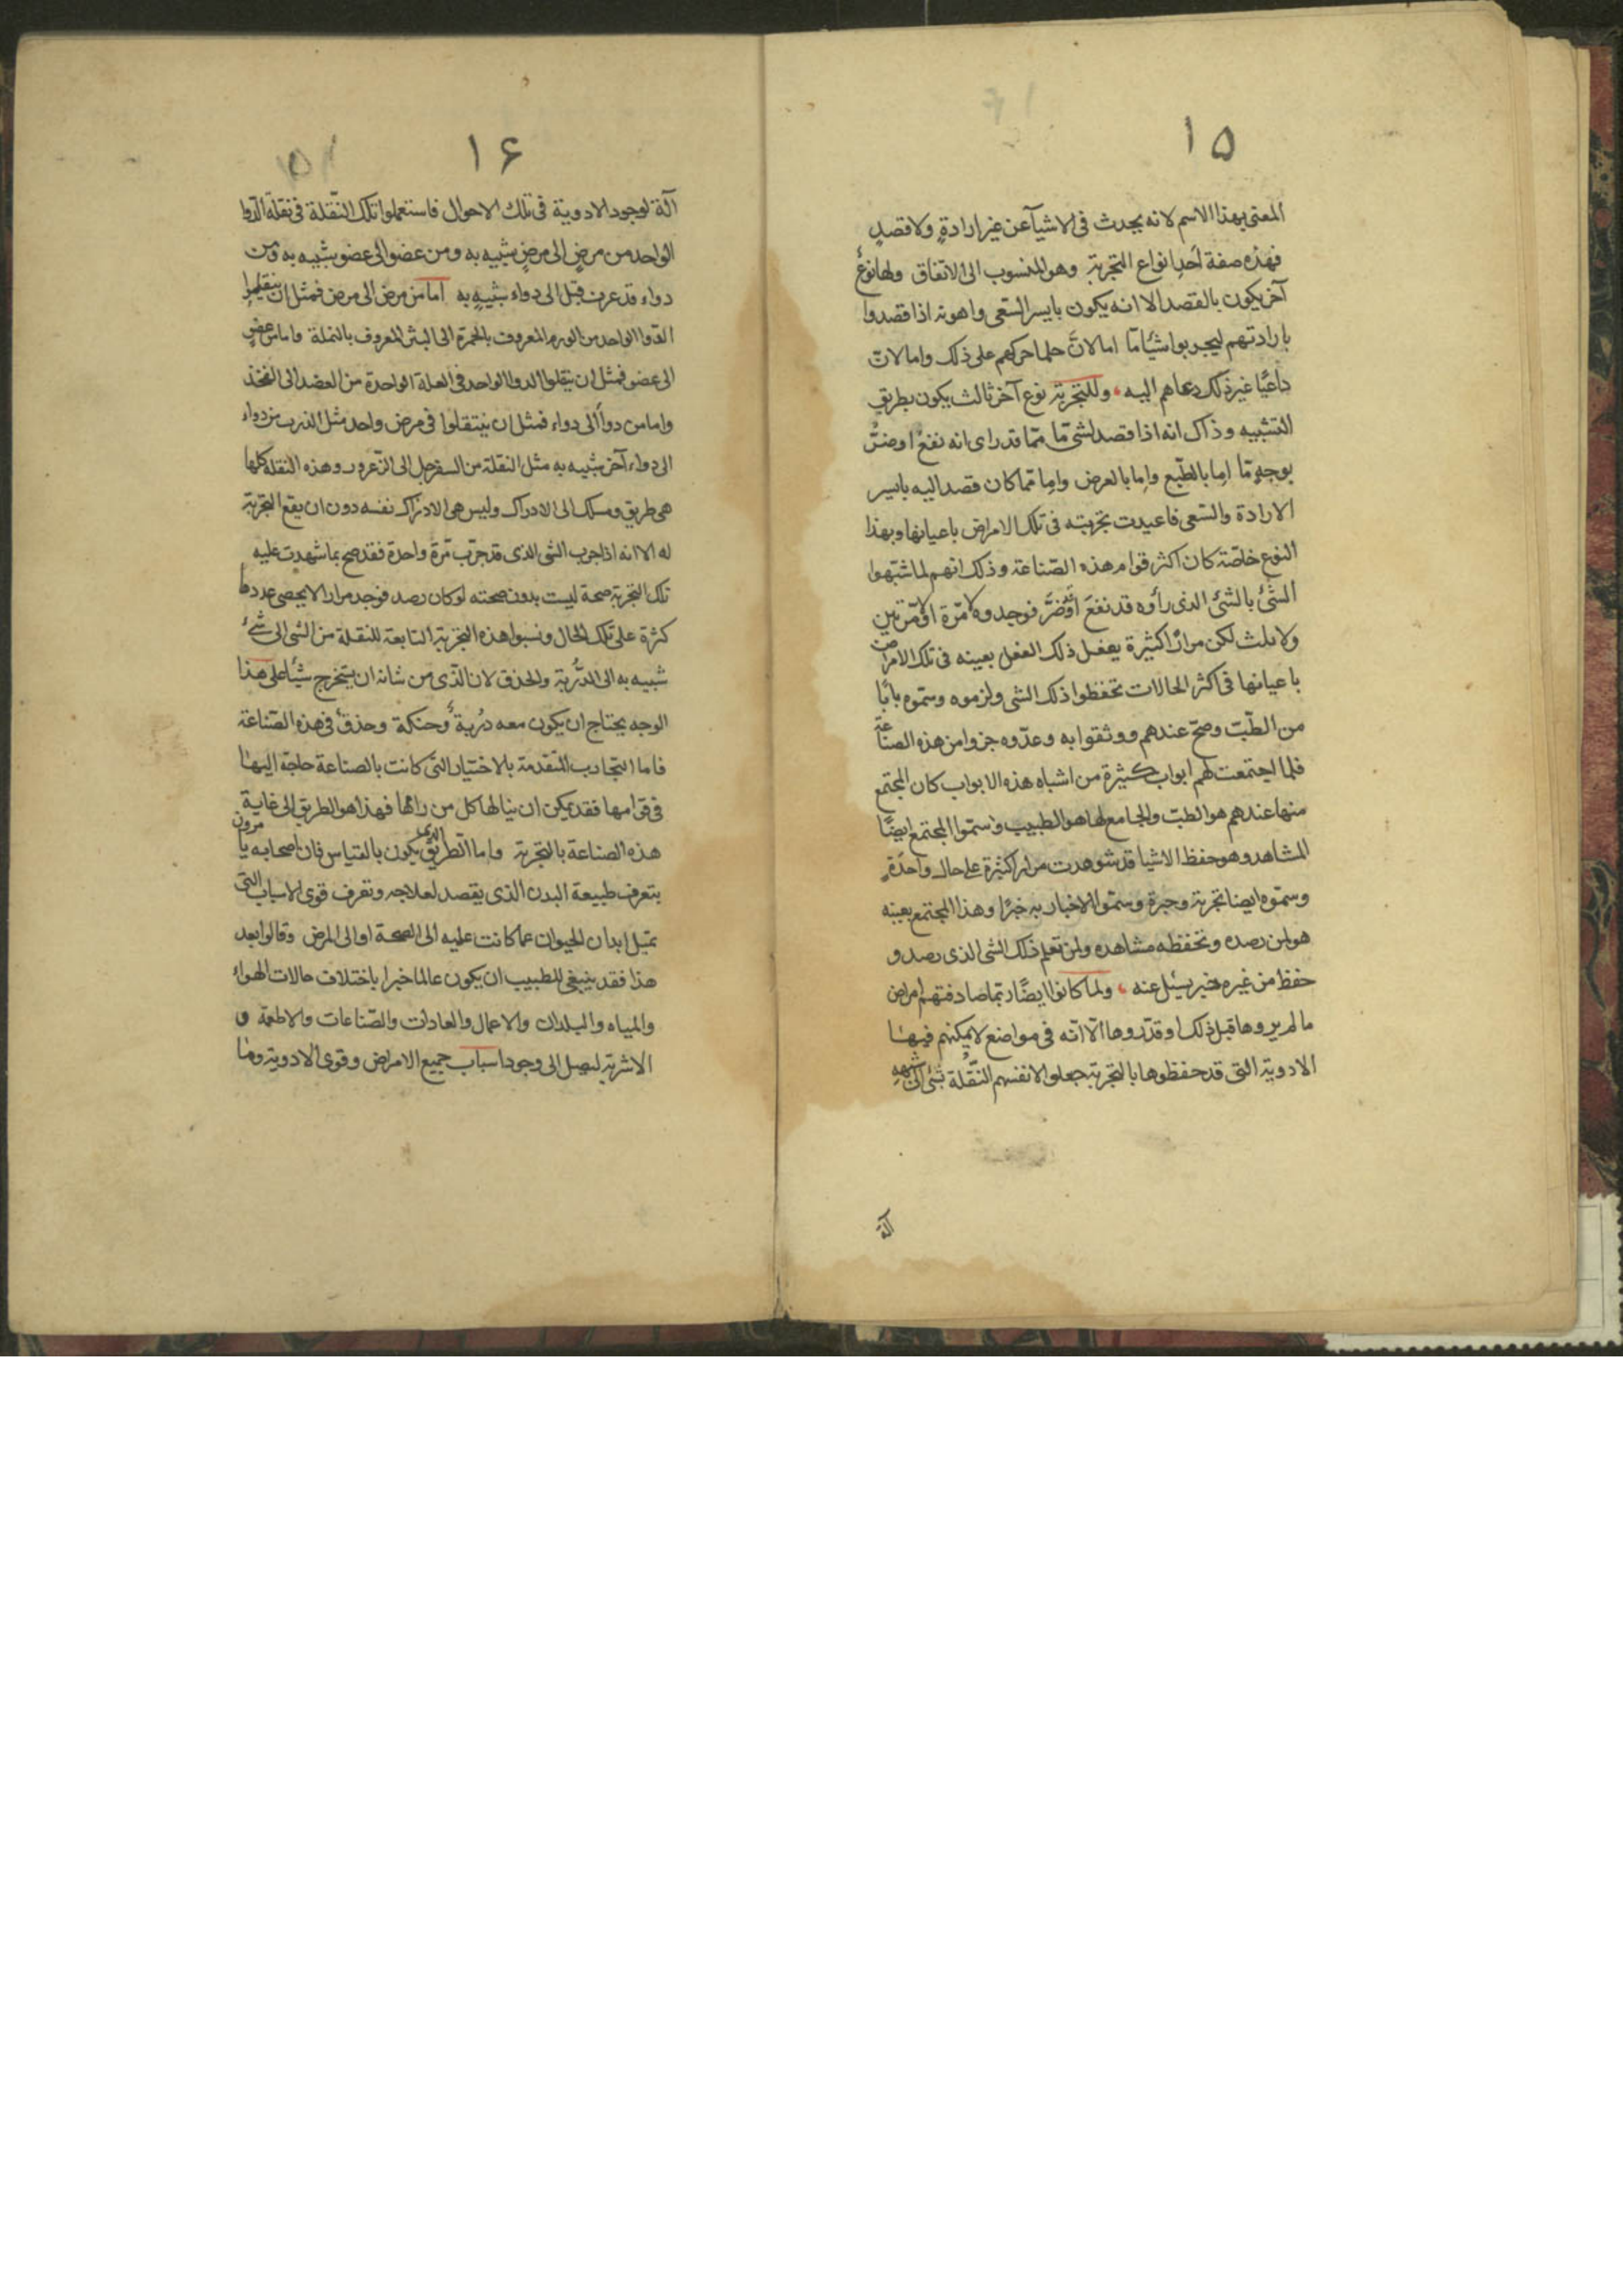 ١٥
المعنى بهذا الاسم لانه يحدث فى الاشيآ عن غير ارادةٍ ولا قصدٍ
فهذه صفة أحدِ انواع التجربة وهو المنسوب الى الاتفاق ولها نوعٌ
آخر يكون بالقصد الا انه يكون بايسر السّعى واهونه اذا قصدوا
بارادتهم ليجربوا شيئًا مّا اما لانّ حلما حركهم على ذلك واما لانّ
داعيًا غير ذلك دعاهم اليه، وللتجربة نوع آخر ثالث يكون بطريق
التشبيه وذاك انه اذا قصد لشئ مّا ممّا قد راى انه نفع او ضرّ
بوجهٍ مّا اما بالطّبع واما بالعرض واما مما كان قصد اليه بايسر
الارادة والسّعى فاعيدت تجربته فى تلك الامراض باعيانها وبهذا
النوع خاصّة كان اكثر قوام هذه الصّناعة وذلك انهم لما شبّهوا
الشّئ بالشئ الذى رأوه قد نفعَ أو ضرَّ فوجدوه لا مرّة او مرّتين
ولا ثلث لكن مرارًا كثيرة يفعل ذلك الفعل بعينه فى تلك الامراض
باعيانها فى اكثر الحالات تحفظوا ذلك الشى ولزموه وسمّوه بابًا
من الطّبّ وصحّ عندهم ووثقوا به وعدّوه جزوا من هذه الصناعة
فلما اجتمعت لهم ابواب كثيرة من اشباه هذه الابواب كان المجتمع
منها عندهم هو الطبّ والجامع لها هو الطبيب وسمّوا المجتمع ايضًا
المشاهد وهو حفظ الاشيا قد شوهدت مرار كثيرة على حال واحدةٍ
وسمّوه ايضا تجربة وخبرة وسمّوا الاخبار به خبرًا وهذا المجتمع بعينه
هو لمن رصده وتحفظه مشاهده ولمن تعلم ذلك الشى الذى رصد و
حفظ من غيره خبر يسئل عنه، ولما كانوا ايضًا ربّما صادفتهم امراض
ما لم يروها قبل ذلك او قد روها الّا انّه فى مواضع لا يمكنهم فيها
الادوية التى قد حفظوها بالتجربة جعلوا لانفسهم النُّقلة بشئ الى شبهه
آلة
١٦
آلة لوجود الادوية فى تلك الاحوال فاستعملوا تلك النّقلة فى نقلة الدّوا
الواحد من مرضٍ الى مرضٍ شبيه به ومن عضو الى عضو شبيه به ومن
دواء قد عرف قبل الى دواء شبيهٍ به اما من مرض الى مرض فمثل ان ينقلوا
الدّوا الواحد من الورم المعروف بالحمرة الى البثر المعروف بالنملة واما من عضو
الى عضو فمثل ان ينقلوا الدوا الواحد فى العلة الواحدة من العضد الى الفخذ
واما من دوأ الى دواء فمثل ان ينتقلوا فى مرض واحد مثل الذرب من دواء
الى دواء آخر شبيه به مثل النقلة من السفرجل الى الزّعرور وهذه النقلة كلها
هى طريق ومسلك الى الادراك وليس هى الادراك نفسه دون ان يقع التجربة
له الا انه اذا جرب الشى الذى قد جرّب مرّة واحدة فقد صح بما شهدت عليه
تلك التجربة صحة ليست بدون صحته لو كان رصد فوجد مرارا لا يحصى عددها
كثرة على تلك الحال ونسبوا هذه التجربة التابعة للنقلة من الشى الى شئ
شبيه به الى الدُّربة والحذق لان الذّى من شانه ان يستخرج شيئًا على هذا
الوجه يحتاج ان يكون معه دُربة وحنكة وحذق فى هذه الصّناعة
فاما التجارب المتقدمة بالاختيار التى كانت بالصناعة حاجة اليها
فى قوامها فقد يمكن ان ينالها كل من راها فهذا هو الطريق الى غاية
هذه الصناعة بالتجربة واما الطريق الذى يكون بالقياس فان اصحابه يامرون
بتعرف طبيعة البدن الذى يقصد لعلاجه وتعرف قوى الاسباب التى
تميل ابدان الحيوان عما كانت عليه الى الصحة او الى المرض وقالوا بعد
هذا فقد ينبغى للطبيب ان يكون عالما خبرا باختلاف حالات الهواء
والمياه والبلدان والاعمال والعادات والصّناعات والاطعمة و
الاشربة ليصل الى وجود اسباب جميع الامراض وقوى الادوية وما